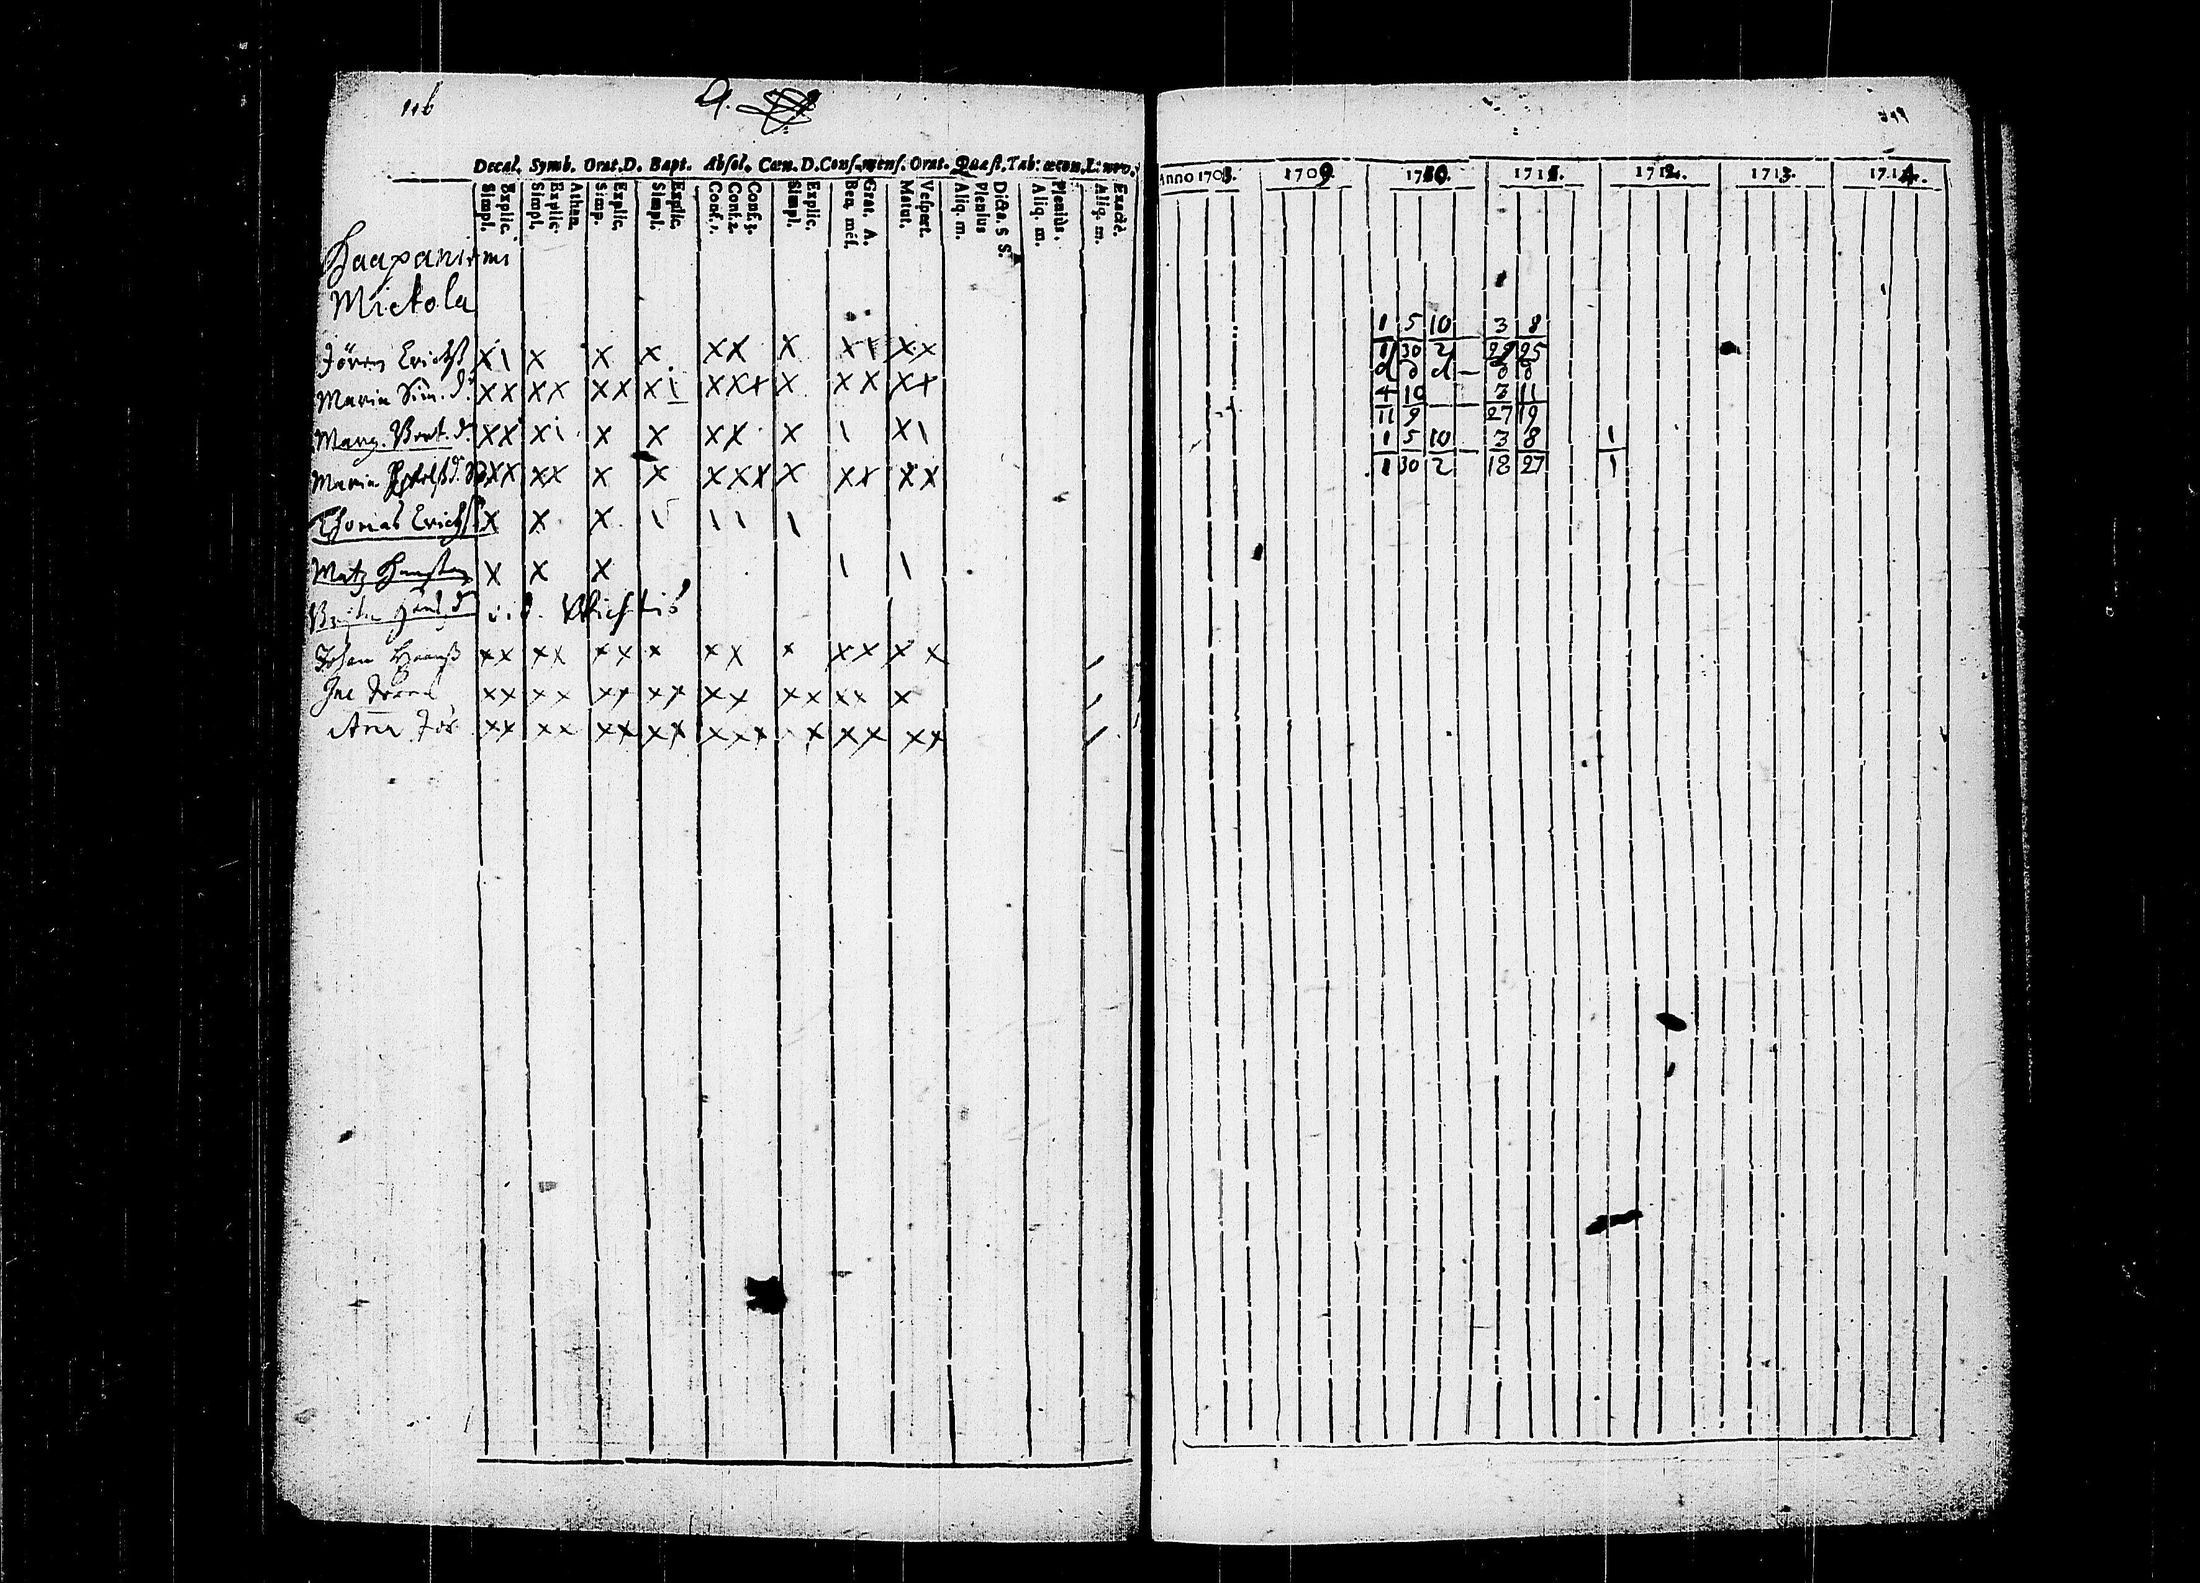 116
Decal. Symb. Orat.D. Bapt. Absol. Cœn.D. Conf. mens. Orat. Quæst. Tab: œcon. L: novo.
Explic. Simpl. Athan. Explic. Simpl. Explic. Simp. Explic. Simpl. Conf. 3. Conf. 2. Conf. 1. Explic. Simpl. Grat. A. Ben. mēs. Vespert. Matut. Dicta. S S. Plenius Aliq. m. Pleniùs. Aliq. m. Exactè. Aliq. m.
Haapaniemi
Mickola
Jören Erichss. x1 x x x xx x x1 xx
Maria Sim. d. xx xx xx x1 xxx x xx xx
Marg. Bert. d. xx x1 x x xx x 1 x1
Maria xx xx x x xxx x xx xx
Thomas Erichss x x x 1 11 1
Matz x x x 1 1
Johan xx xx xx x xx x xx xx
xx xx xx xx xx xx xx x
Anna Jör. xx xx xx xx xxx x xx xx
Anno 1708. 1709. 1710. 1711. 1712. 1713. 1714.
1 5 10 — 3 8
1 30 2 — 29 25
d d d — d d
4 10 3 11
11 9 — — 27 19
1 5 10 — 3 8 1
1 30 2 — 18 27 1